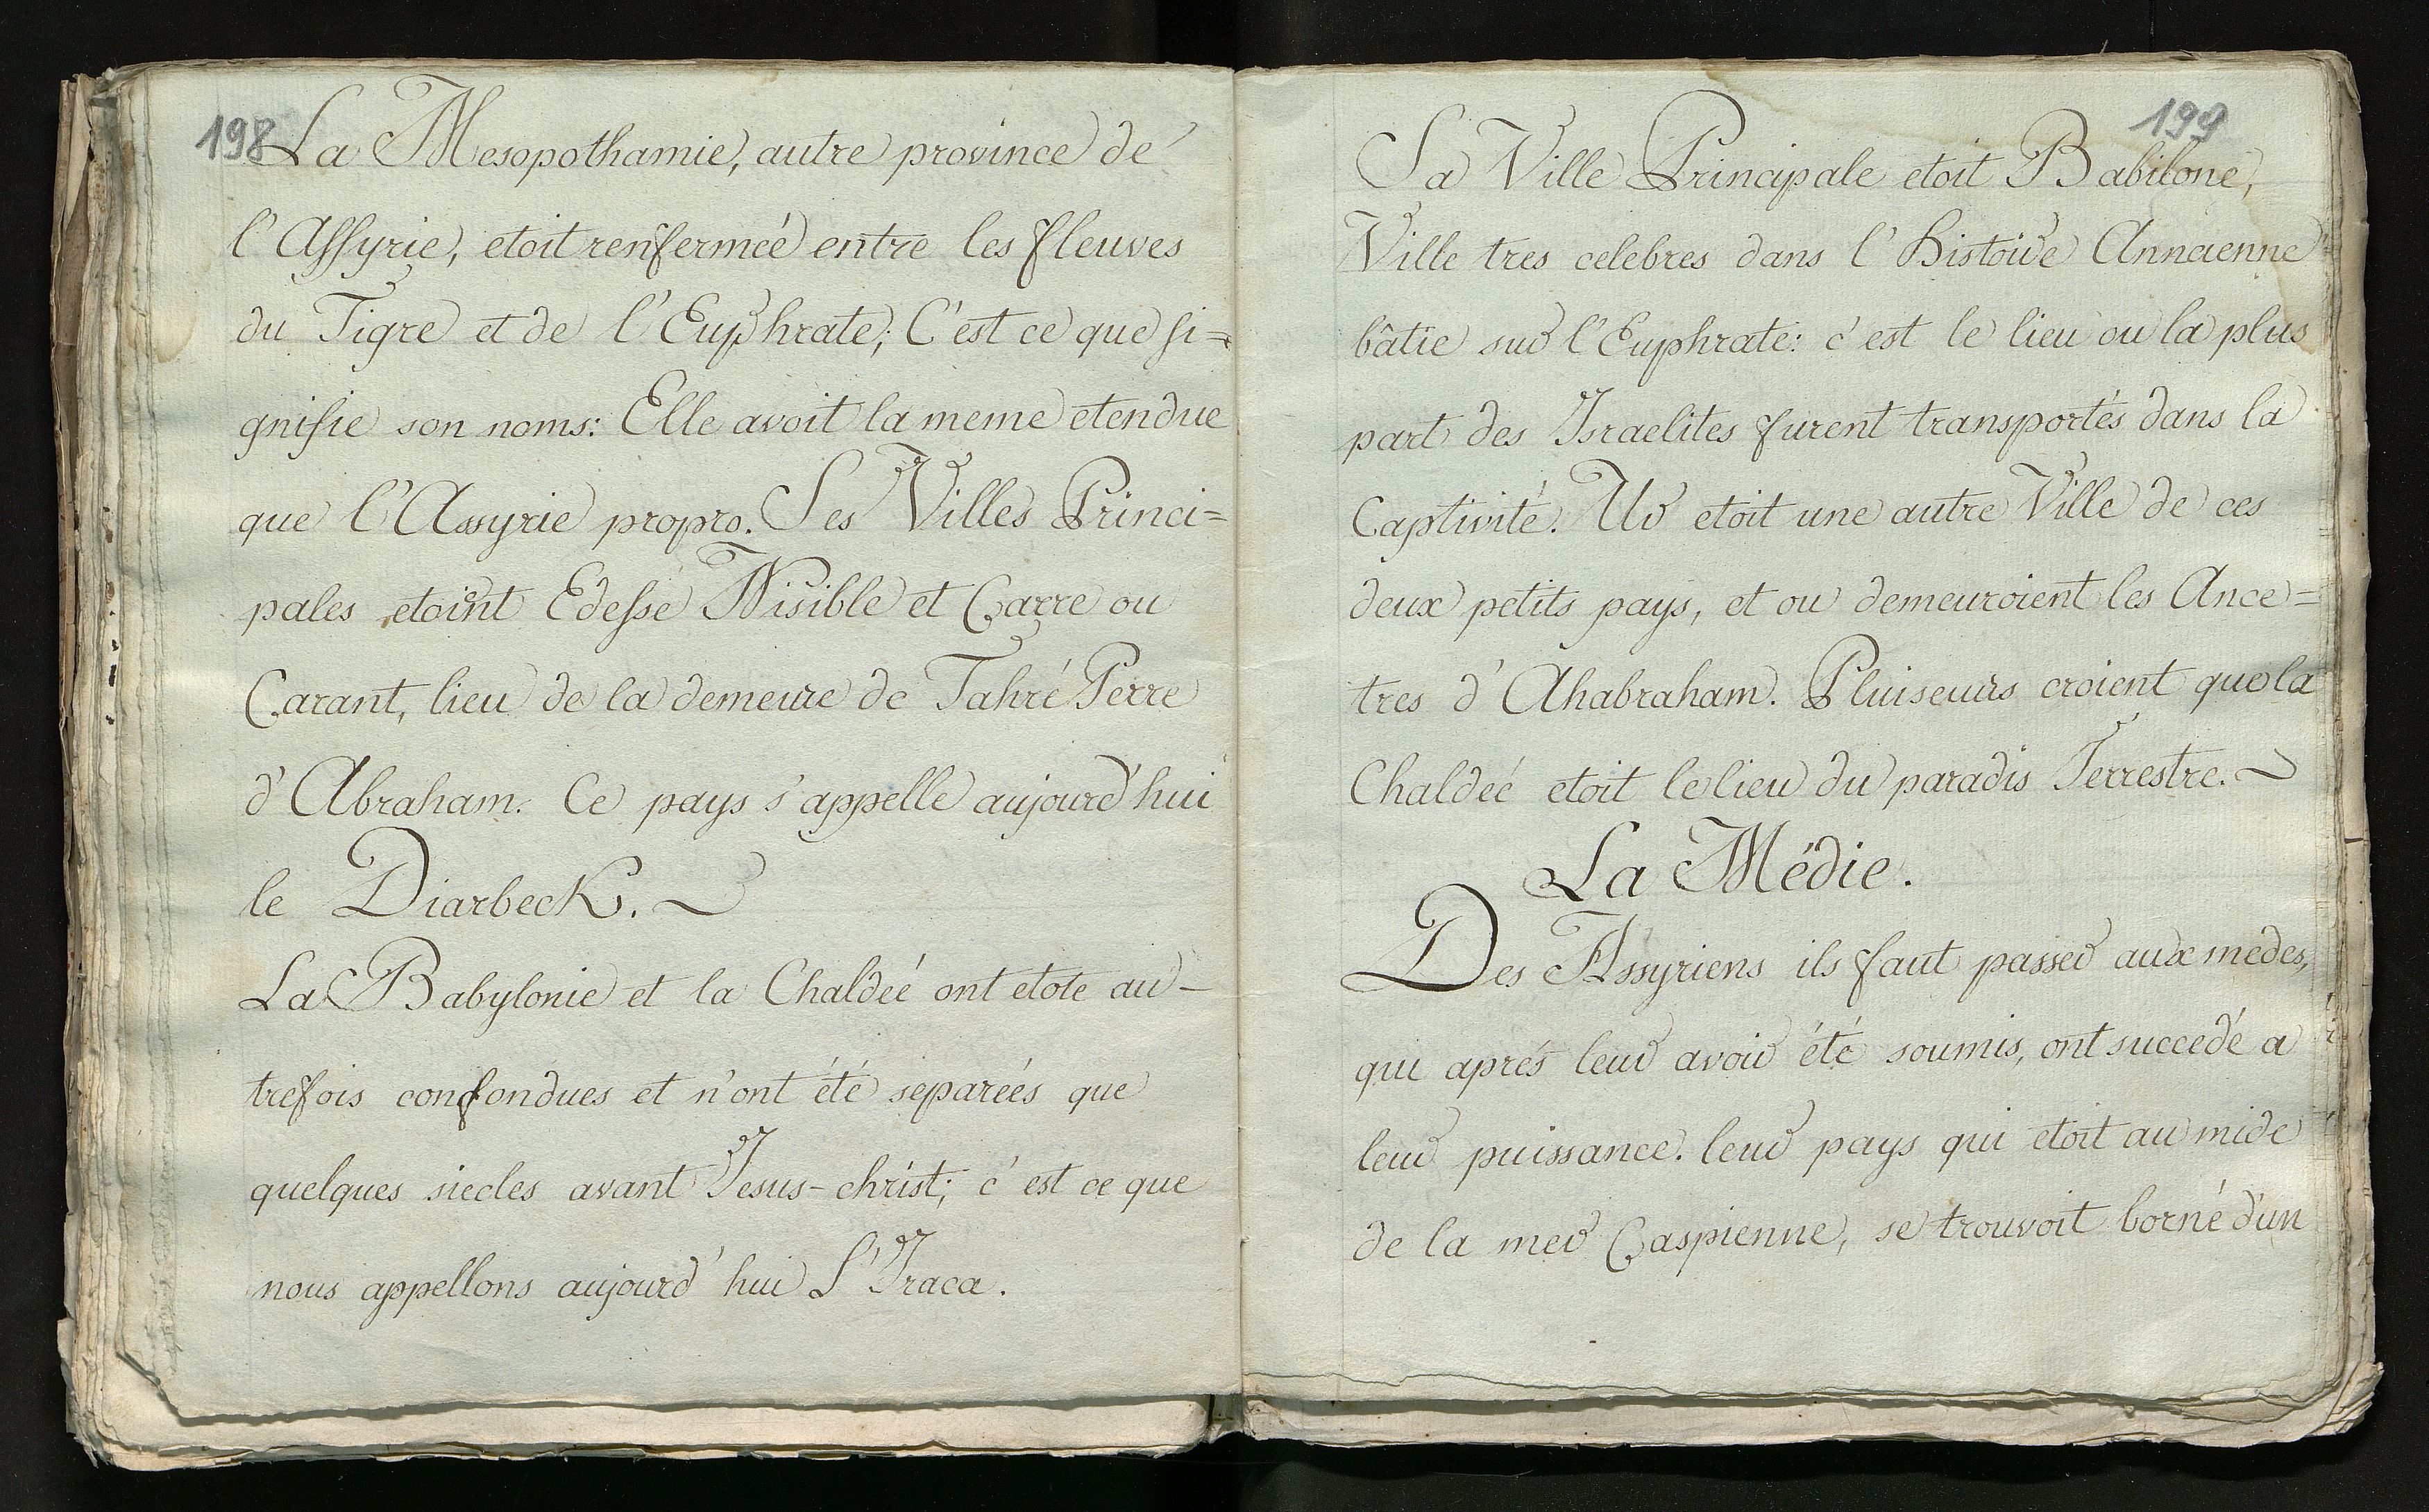 198
La Mesopothamie, autre province de
l'Assyrie, etoit renfermeé entre les fleuves
du Tigre et de l'Euphrate; C'est ce que si=
gnifie son noms: Elle avoit la meme etendue
que l'Assyrie propro. Ses Villes Princi=
pales etoient Edesse Nisible et Carre ou
Carant, lieu de la demeure de Tahré Perre
d'Abraham. Ce pays s'appelle aujourd'hui
le Diarbeck.
La Babylonie et la Chaldéé ont etote au-
trefois confondues et n'ont été separéés que
quelques siecles avant Jesus-christ; c'est ce que
nous appellons aujourd'hui L'Iraca.
199
Sa Ville Principale etoit Babilone,
Ville tres celebres dans l'Histoire Anncienne
bâtie sur l'Euphrate: c'est le lieu ou la plus
part des Israelites furent transportés dans la
Captivité. Ur etoit une autre Ville de ces
deux petits pays, et ou demeuroient les Ance=
tres d'Ahabraham. Pluiseurs croient que la
Chaldeé etoit le lieu du paradis Terrestre.
La Médie.
Des Assyriens ils faut passer aux medes,
qui aprés leur avoir été soumis, ont succedé a
leur puissance. leur pays qui etoit au mide
de la mer Caspienne, se trouvoit borné d'un